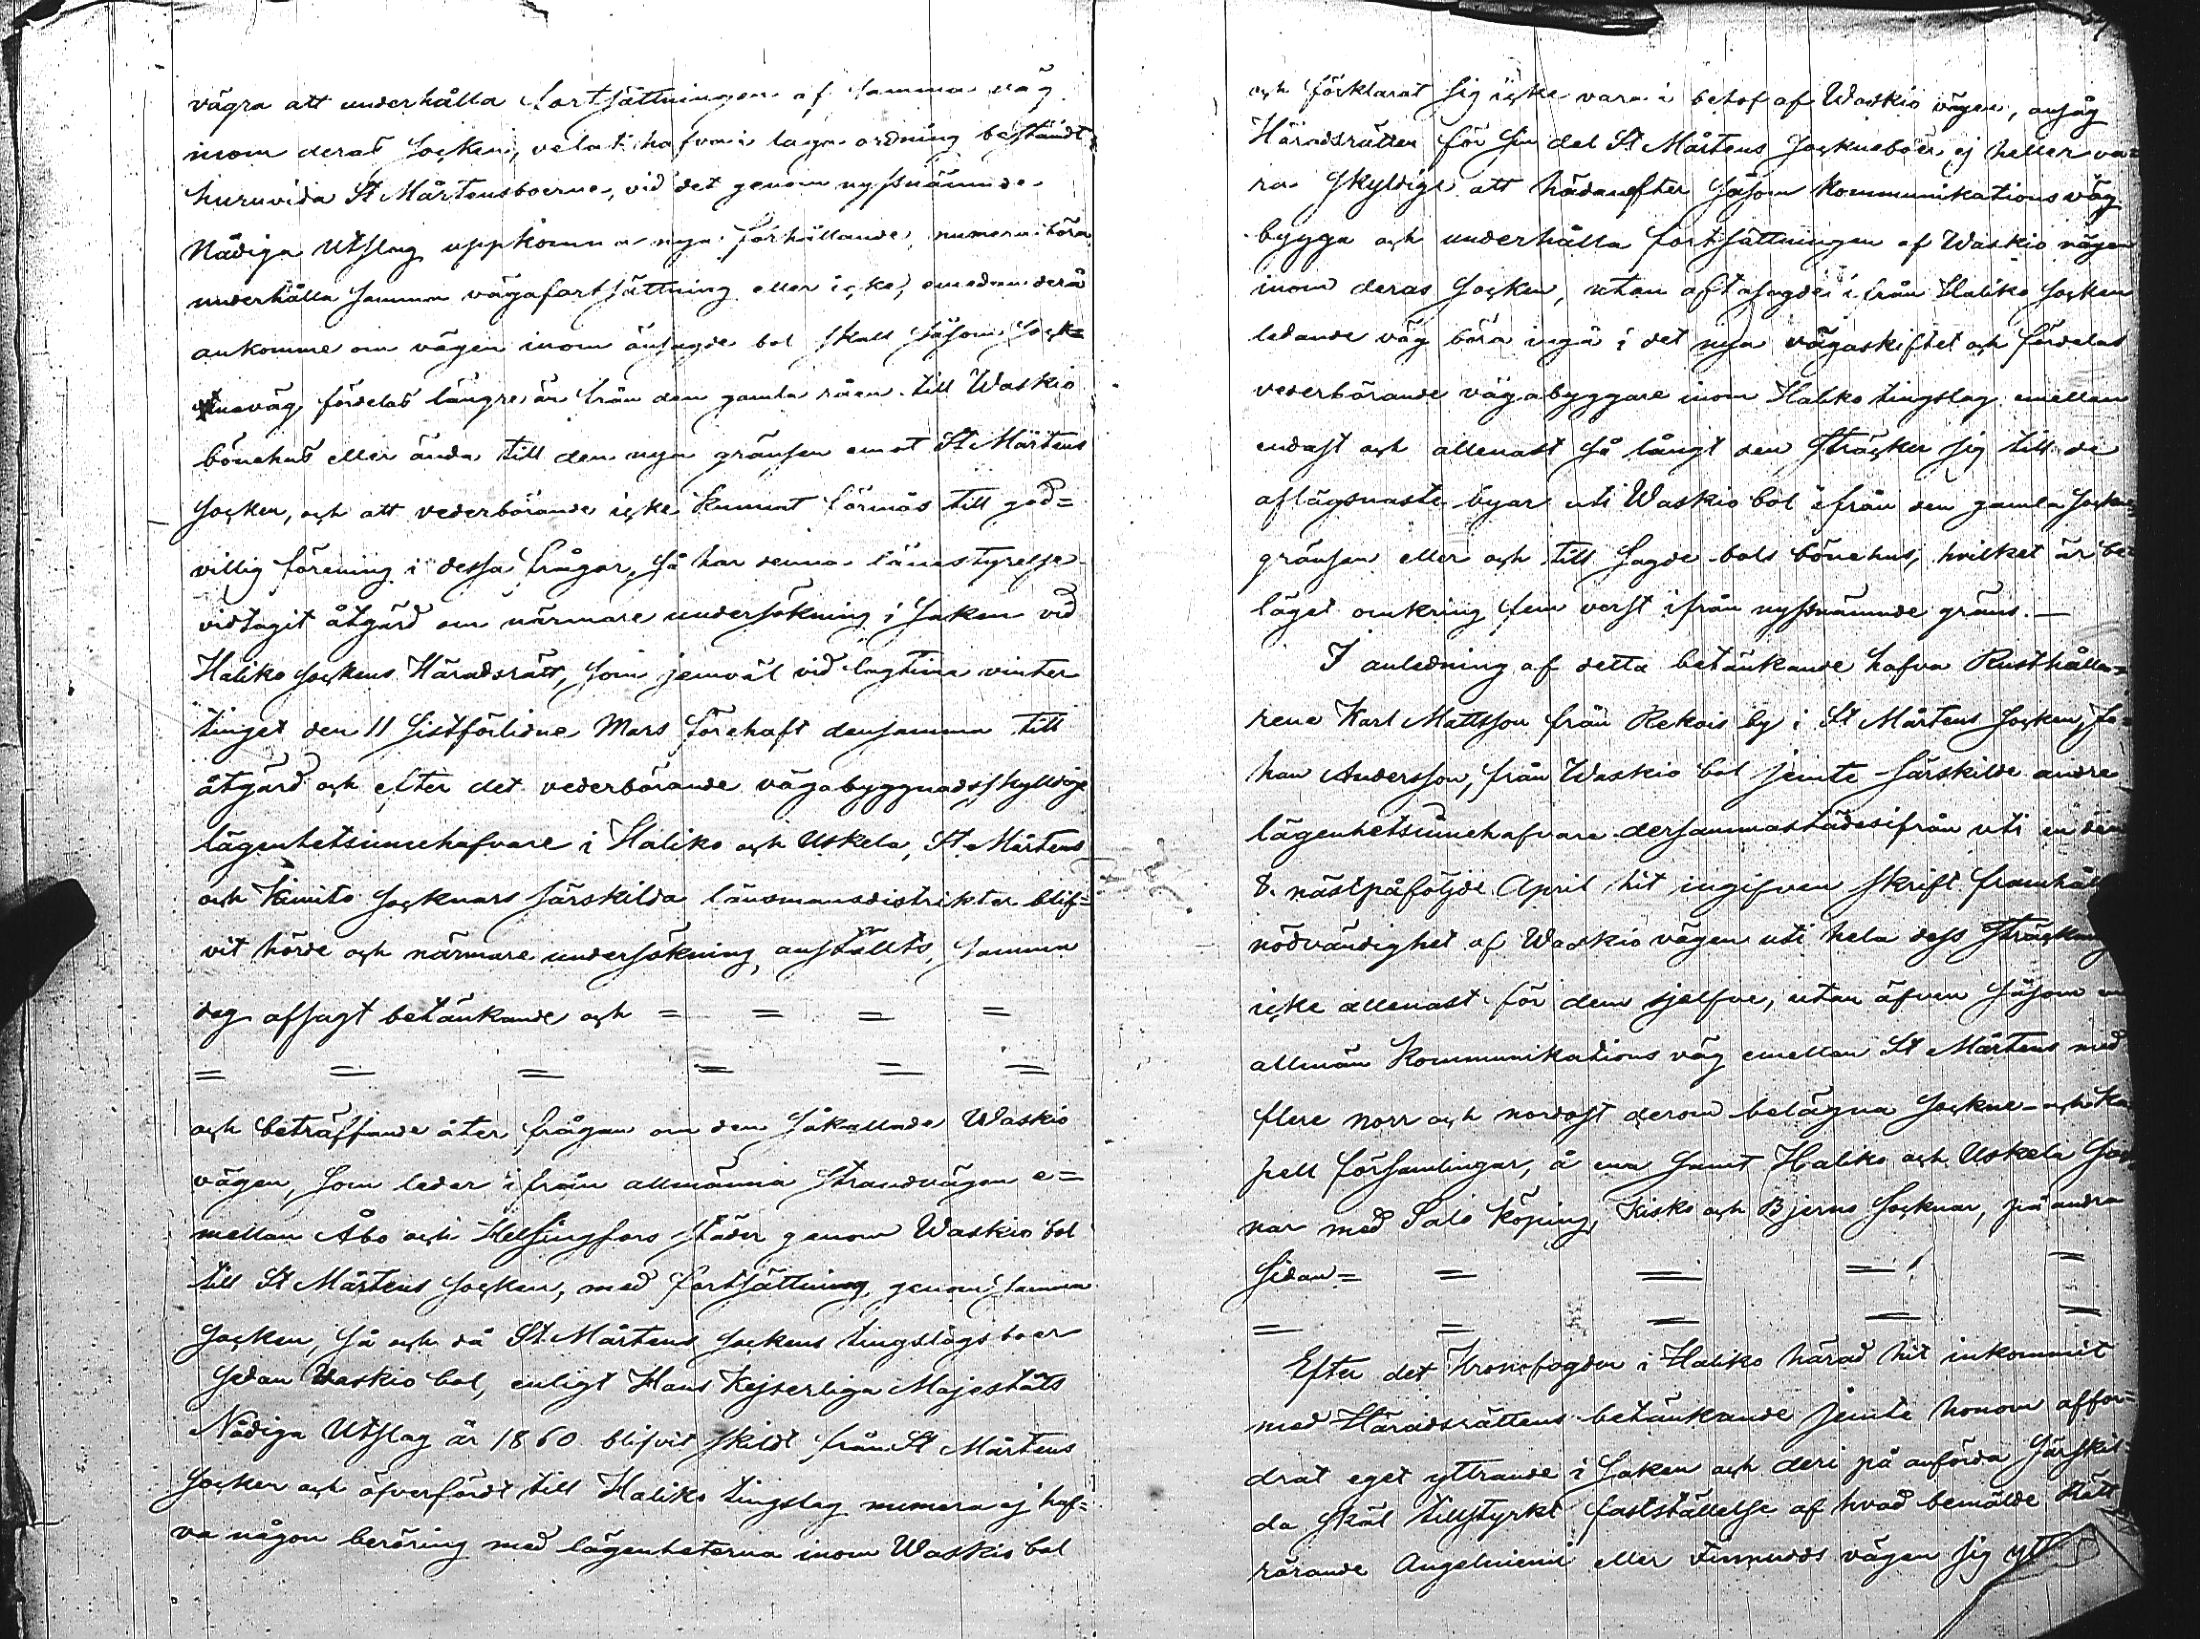 vägra att underhålla fortsättningen af samma väg
inom deras socken, velat hafva i laga ordning bestämdt,
huruvida St Mårtensboerne, vid det genom nyssnämnde
Nådiga Utslag uppkomna nya förhållande, numera böra
underhålla samma vägafortsättning eller icke, emedan derå
ankomme om vägen inom ansagde bol skall såsom sock=
neväg fördelas längre än från den gamla råen till Waskio
bönehus eller ända till den nya gränsen emot St Mårtens
socken, och att vederbörande icke kunnat förmås till god=
villig förening i dessa frågor, så har denna länestyrelse
vidtagit åtgärd om närmare undersökning i saken vid
Haliko sockens Häradsrätt, som jemväl vid lagtima vinter
tinget den 11 sistförlidne Mars förehaft densamma till
åtgärd och efter det vederbörande vägabyggnadsskyldige
lägenhetsinnehafvare i Haliko och Uskela, St Mårtens
och Kimito socknars särskilda länsmansdistrikter blif=
vit hörde och närmare undersökning anställts, samma
dag afsagt betänkande och = = = =
= = = = = =
och beträffande åter frågan om den såkallade Waskio
vägen, som leder ifrån allmänna strandvägen e=
mellan Åbo och Helsingfors städer genom Waskio bol
till St Mårtens socken, med fortsättning genom samma
socken, så och då St Mårtens sockens tingslagsboer
sedan Waskio bol, enligt Hans Kejserliga Majestäts
Nådiga Utslag år 1860 blifvit skildt från St Mårtens
socken och öfverfördt till Haliko tingslag numera ej haf=
va någon beröring med lägenheterna inom Waskio bol
och förklarat sig icke vara i behof af Waskio vägen, ansåg
Häradsrätten för sin del St Mårtens sockneboer ej heller va=
ra skyldige att hädanefter såsom kommunikationsväg
bygga och underhålla fortsättningen af Waskio vägen
inom deras socken, utan oftasagde ifrån Haliko socken
ledande väg böra ingå i det nya vägaskiftet och fördelas
vederbörande vägabyggare inom Haliko tingslag emellan
endast och allenast så långt den sträcker sig till de
aflägsnaste byar uti Waskio bol ifrån den gamla socken
gränsen eller och till sagde bols bönehus, hvilket är be=
läget omkring fem verst ifrån nyssnämnde gräns. —
I anledning af detta betänkande hafva Rusthålla=
rene Karl Mattsson från Rekois by i St Mårtens socken, Jo=
han Andersson, från Waskio bol jemte särskilde andre
lägenhetsinnehafvare dersammastädesifrån uti en den
8. nästpåföljde April hit ingifven skrift framhåll
nödvändighet af Waskio vägen uti hela dess sträckning
icke allenast för dem sjelfve, utan äfven såsom en
allmän kommunikations väg emellan St Mårtens med
flere norr och nordost derom belägna sockne- och ka
pell församlingar, å ena samt Haliko och Uskela sock
nar med Salo köping, Kisko och Bjerno socknar, på andra
sidan = = = = =
= = = = =
Efter det Kronofogden i Haliko härad hit inkommit
med Häradsrättens betänkande jemte honom affor=
drat eget yttrande i saken och deri på anförda särskil=
da skäl tillstyrkt fastställelse af hvad bemälde Rätt
rörande Angelniemi eller Finnudds vägen sig ytt